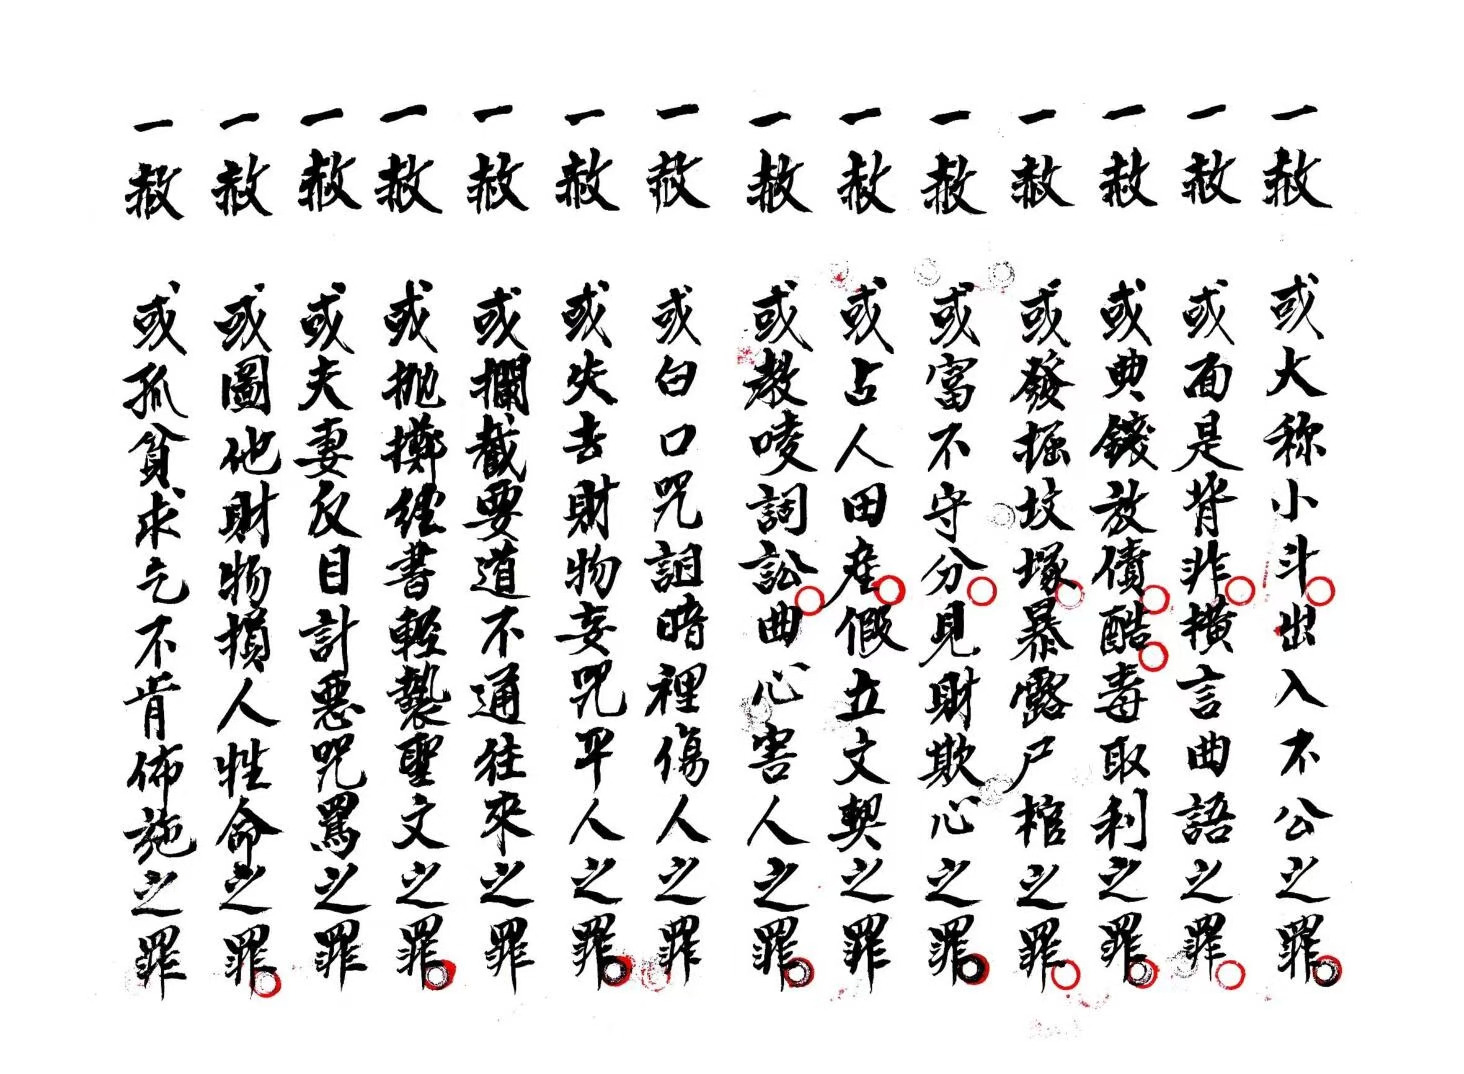 一赦 或大称小斗出入不公之罪
一赦 或面是背非橫言曲語之罪
一赦 或典錢放債酷毒取利之罪
一赦 或發掘坟塚暴露尸棺之罪
一赦 或富不守分見財欺心之罪
一赦 或占人田産假立文契之罪
一赦 或教唆詞訟曲心害人之罪
一赦 或白口咒詛暗裡傷人之罪
一赦 或失去財物妄咒平人之罪
一赦 或攔截要道不通往來之罪
一赦 或抛擲経書輕褻聖文之罪
一赦 或夫妻反目計惡咒罵之罪
一赦 或圖他財物損人牲命之罪
一赦 或孤貧求乞不肯佈施之罪